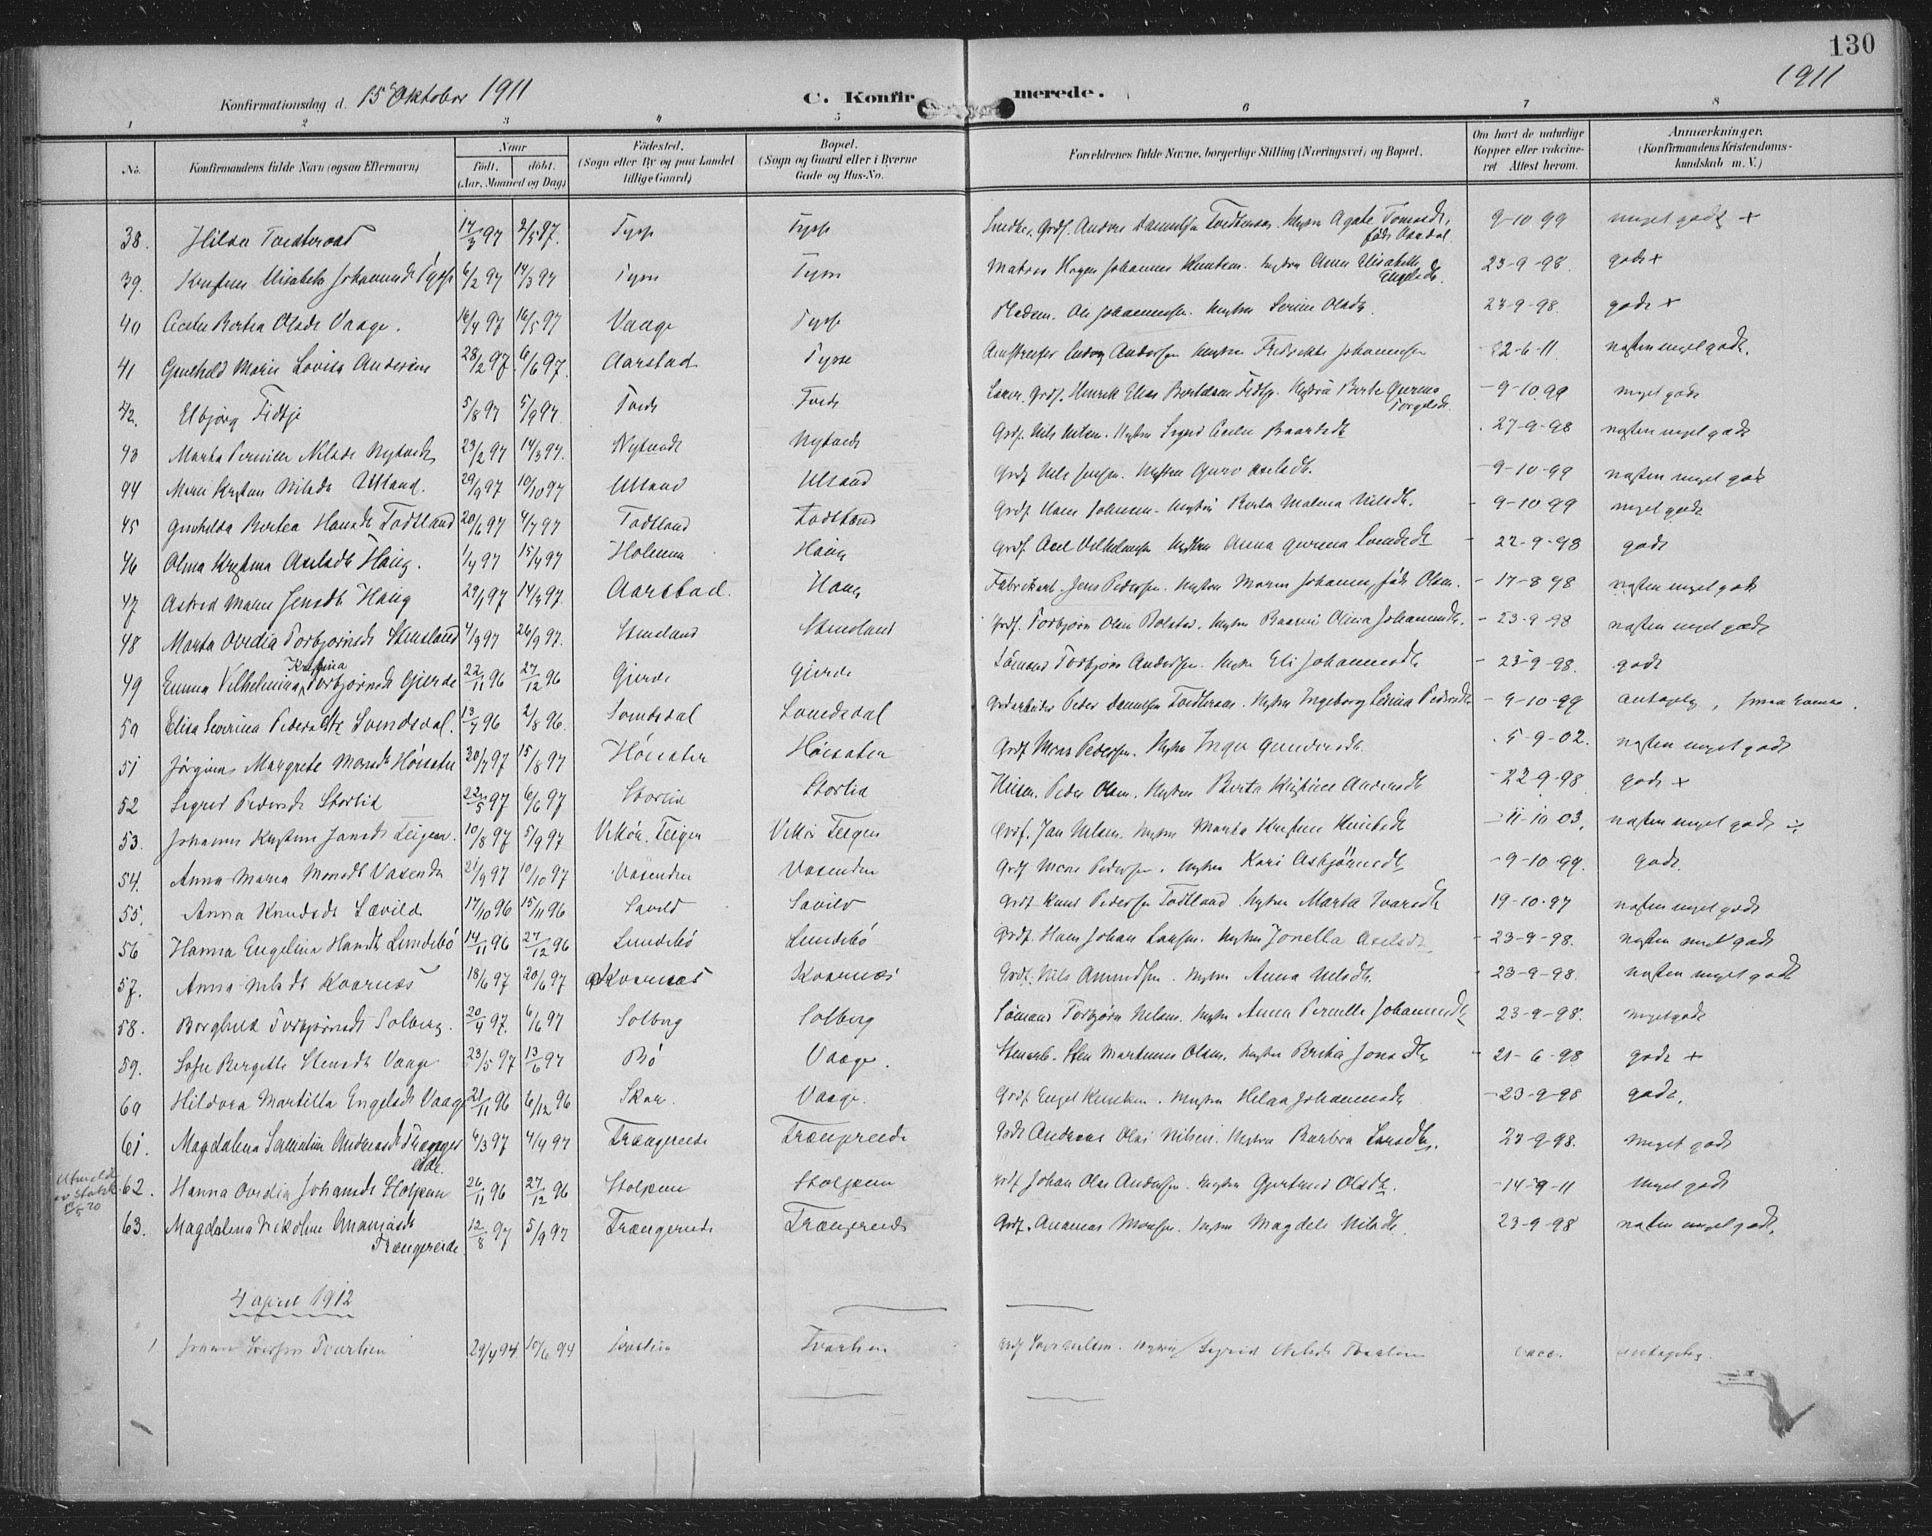 130
1911
Konfirmationsdag d. 15 Oktober 1911
C. Konfirmerede.
1 2 3 4 5 6 7 8
No. Konfirmandens fulde Navn (ogsaa Efternavn) Naar født, døbt. (Aar, Maaned og Dag) Fødested. (Sogn eller By og paa Landet tillige Gaard) Bopæl. (Sogn og Gaard eller i Byerne Gade og Hus-No. Forældrenes fulde Navne, borgerlige Stilling (Næringsvei) og Bopæl. Om havt de naturlige Kopper eller vaccineret Attest herom. Anmærkninger. (Konfirmandens Kristendomskundskab m. V.)
38. Hilda 17/3 97 2/5 97. Tysse Tysse 9-10 99 meget godt +
39. Johannesdt Tysse 6/2 97 14/3 97 Tysse Tysse Matros Hagen Johannes Knutsen. Hustru Anna Elisabeth Engelsdt. 23-9-98. godt +
40 Cecilie Bertea Olsdt Vaage. 16/4 97 16/5 97 Vaage Tysse Pladsm. Ole Johannessen. Hustru Serine Olsdt. 23-9-98. godt +
41 Gunhild Marie Lovisa Andersen 28/2 97. 6/6 97. Aarstad Tysse Andersen Hustru Fredrikke Johannessen 22-6-11. næsten meget godt.
42. Elbjørg Fidtje 5/8 97 5/9 97. Henrik Elias Bertelsen Hustru Berte Gurine Torgilsdt. -9-10.99 meget godt
43 Marta Pernille Nilsdt 23/2 97 14/3 97. Grdf. Nils Nilsen. Hustru Sigrid Cecilie Baardsdt 27-9-98 næsten meget godt
44 Marie Kristine Nilsdt Ulland. 29/9 97 10/10 97 Ulland Ulland Grdf Nils Jensen. Hustru Guro Axelsdt. -9-10-99 næsten meget godt
45 Gunhilda Bertea Hansdt Todtland 20/6 97 4/7 97 Todtland Todtland Grdf. Hans Johnsen. Hustru Berta Malena Nilsdt. -9-10-99 meget godt
46 Olma Kristina Axelsdt Haug. 1/4 97 15/4 97 Holmen Haug Grdf Axel Vilhelmsen Hustru Anna Gurina - 22-9-98 godt
47 Astrid Marie Jensdt Haug 29/1 97 14/3 97. Aarstad. Haug Fabrikarb. Jens Pedersen. Hustru Maren Johanne, født Olsen. - 17-8 98 næsten meget godt
48 Marta Ovedia Torbjørnsdt Stensland 4/9 97 26/9 97. Stensland Stensland Grdf. Torbjørn Olsen Hustru Olina Johannesdt. - 23-9-98 næsten meget godt
49 Emma Vilhelmina Kristina Torbjørnsdt Gjerde 22/11 96 27/12 96 Gjerde Gjerde Sømand Torbjørn Andersen. Hustru Eli Johannesdt - 23-9-98. godt
50 Elisa Severina Pedersdt Svendsdal. 13/7 96 2/8 96. Svendsdal Svendsdal Peder Danielsen Hustru Ingeborg Pedersdt - 9-10-99 antagelig,
51 Jørgina Margrete Monsdt Høisæter 20/7 97 15/8 97 Høisæter Høisæter Grdf Mons Pedersen. Hustru Inga Gundersdt 5-9-02. næsten meget godt
52 Sigrid Pedersdt Storlid 22/5 97 6/6 97 Storlid Storlid Husm. Peder Olsen. Hustru Berta Kristine Andersdt -22-9-98 godt +
53. Johanna Kristine Jansdt Teigen. 10/8 97 5/9 97 Vikör. Teigen Vikör Teigen Grdf. Jan Nilsen. Hustru Marta Kristine Knutsdt -11-10 03. næsten meget godt
54. Anna Maria Monsdt Vasenden 21/9 97 10/10 97 Vasenden Vasenden Grdf Mons Pedersen. Hustru Kari Asbjørnsdt -9-10-99. godt.
55. Anna Knudsdt Sævild 17/10 96 15/11 96 Sævild Sævild Grdf Knut Pedersen Todtland Hustru Marta Ivarsdt 19-10-97 næsten meget godt
56 Hanna Engelina Hansdt Lundebø 14/11 96 27/12 96 Lundebø Lundebø Grdf. Hans Johan Larsen. Hustru Jonetta Axelsdt - 23-9-98. næsten meget godt
57. Anna Nilsdt Kvarnæs 18/6 97 20/6 97 Kvarnæs Kvarnæs Grdf. Nils Amundsen. Hustru Anna Nilsdt. - 23-9-98. næsten meget godt
58. Borghild Torbjørnsdt Solberg. 20/4 97. 6/6 97 Solberg Solberg Sømand Torbjørn Nilsen. Hustru Anna Pernille Johannesdt 23-9-98. meget godt
59. Sofie Bergitte Stensdt Vaage 23/5 97 13/6 97 Bø Vaage. Stenarb. Sten Martinus Olsen. Hustru Brita Jonsdt - 21-6-98 godt +
60 Hildora Martilla Engelsdt Vaage 21/11 96 6/12 96 Skar. Vaage. Grdf. Engel Knutsen. Hustru Helga Johannesdt -23-9-98 godt.
61. Magdalena Andreasdt Trængereide. 4/3 97 4/4 97 Trængereide Trængereide Grdf Andreas Olai Nilsen. Hustru Barbra Larsdt. 27-9-98. meget godt
Utmeldt av Statsk. /5 20
62. Hanna Ovedia Johansdt Stolpen 26/11 96 27/12 96 Stolpen Stolpen Grdf Johan Olai Andersen. Hustru Gjertrud Olsdt. -14-9-11 meget godt
63. Magdalena Nikoline Ananiasdt Trængereide. 12/8 97 5/9 97 Trængereide Trængereide Grdf. Ananias Monsen. Hustru Magdeli Nilsdt. 23-9-98 næsten meget godt.
4 april 1912
1 Tvartien 29/4 94. 10/6 94 Tvartien Tvartien Hustru Sigrid Nilsdt Tvartien vacc. antagelig.